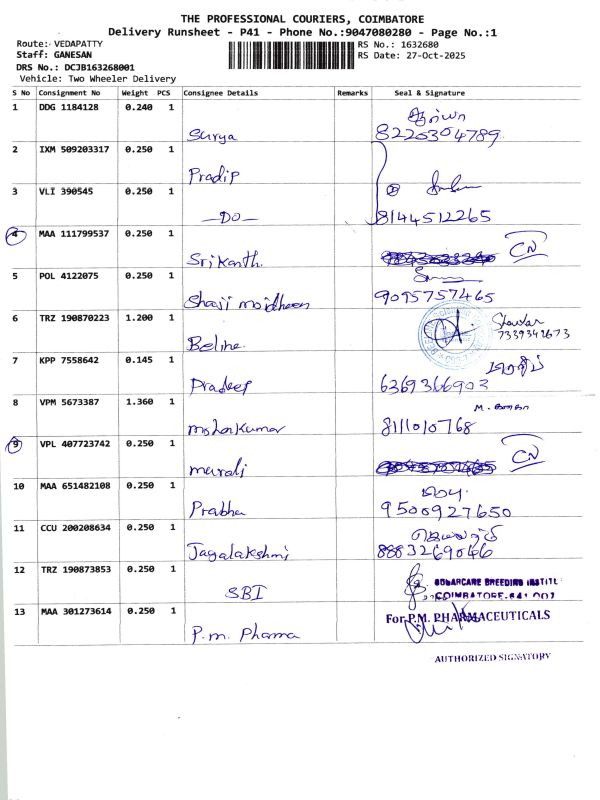 THE PROFESSIONAL COURIERS, COIMBATORE
Delivery Runsheet - P41 - Phone No.:9047080280 - Page No.:1
Route: VEDAPATTY
RS No.: 1632680
Staff: GANESAN
RS Date: 27-Oct-2025
DRS No.: DCJB163268001
Vehicle: Two Wheeler Delivery
S No Consignment No Weight PCS Consignee Details Remarks Seal & Signature
1 DDG 1184128 0.240 1
Surya 8220304789
2 IXM 509203317 0.250 1
Pradip
3 VLI 390545 0.250 1
—DO— 8144512265
4 MAA 111799537 0.250 1 CN
Srikanth
5 POL 4122075 0.250 1
Shaji moidheen 9095757465
6 TRZ 190870223 1.200 1
7339342673
Beline
7 KPP 7558642 0.145 1
Pradeep 6369366903
8 VPM 5673387 1.360 1
mohankumar 8111010768
9 VPL 407723742 0.250 1 CN
murali
10 MAA 651482108 0.250 1
Prabha 9500927650
11 CCU 200208634 0.250 1
Jagalakshmi 8883269046
12 TRZ 190873853 0.250 1
SBI COIMBATORE-641 007
13 MAA 301273614 0.250 1 For P.M. PHARMACEUTICALS
P.m. Pharma
AUTHORIZED SIGNATORY